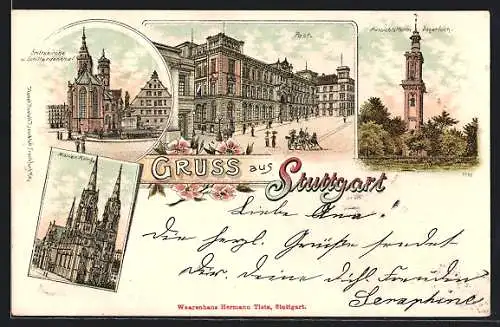 Stiftskirche
u. Schillerdenkmal
Post.
Aussichtsturm Degerloch.
Marien Kirche
GRUSS aus Stuttgart
Liebe Ana!
Die herzl. Grüße sendet
Dir, deine dich Freundin
Seraphine
Waarenhaus Hermann Tietz, Stuttgart.